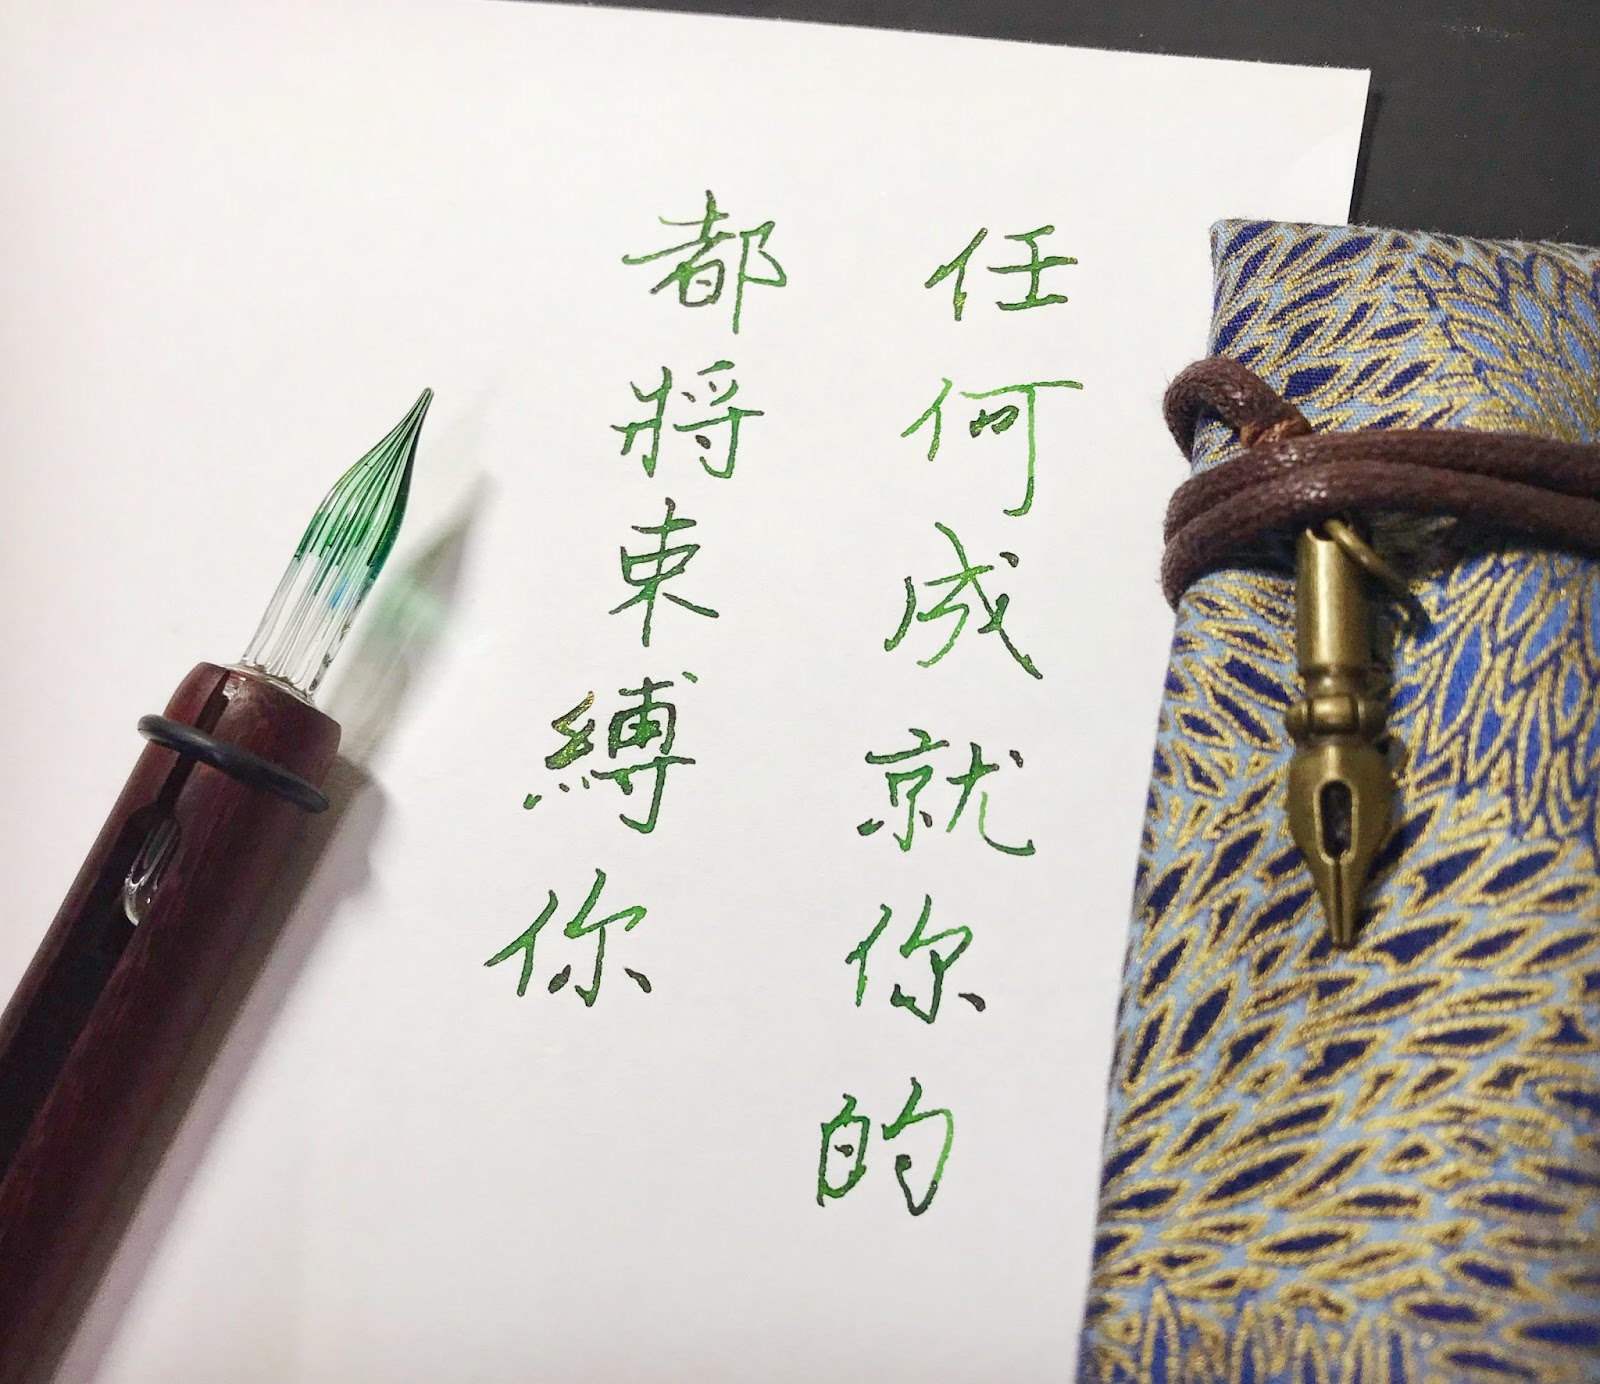 任何成就你的
都將束縛你